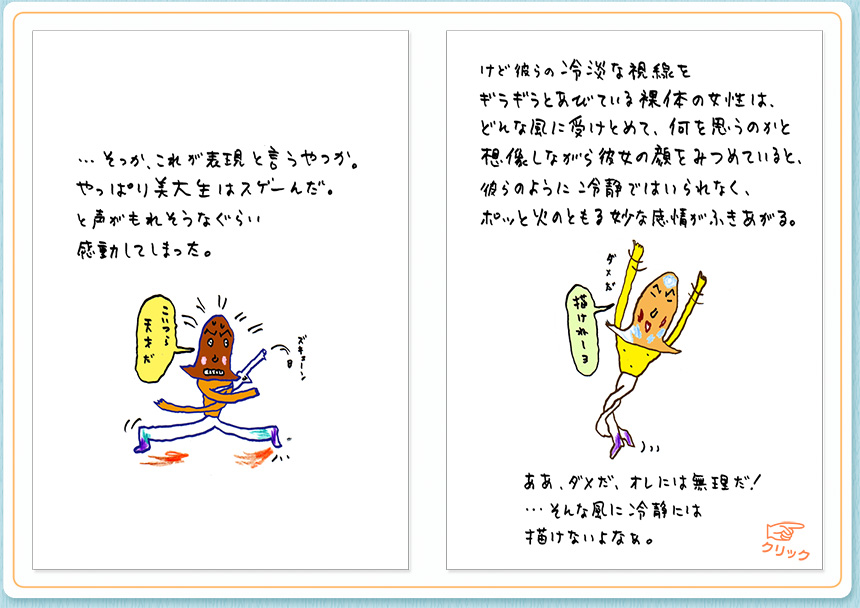 …そっか、これが表現と言うやつか。
やっぱり美大生はスゲーんだ。
と声がもれそうなぐらい
感動してしまった。
こいつら
天才だ
ズキューン
けど彼らの冷淡な視線を
ギラギラとあびている裸体の女性は、
どんな風に受けとめて、何を思うのかと
想像しながら彼女の顔をみつめていると、
彼らのように冷静ではいられなく、
ポッと火のともる妙な感情がふきあがる。
ダメだ
描けねーヨ
ああ、ダメだ、オレには無理だ!
…そんな風に冷静には
描けないよなぁ。
クリック